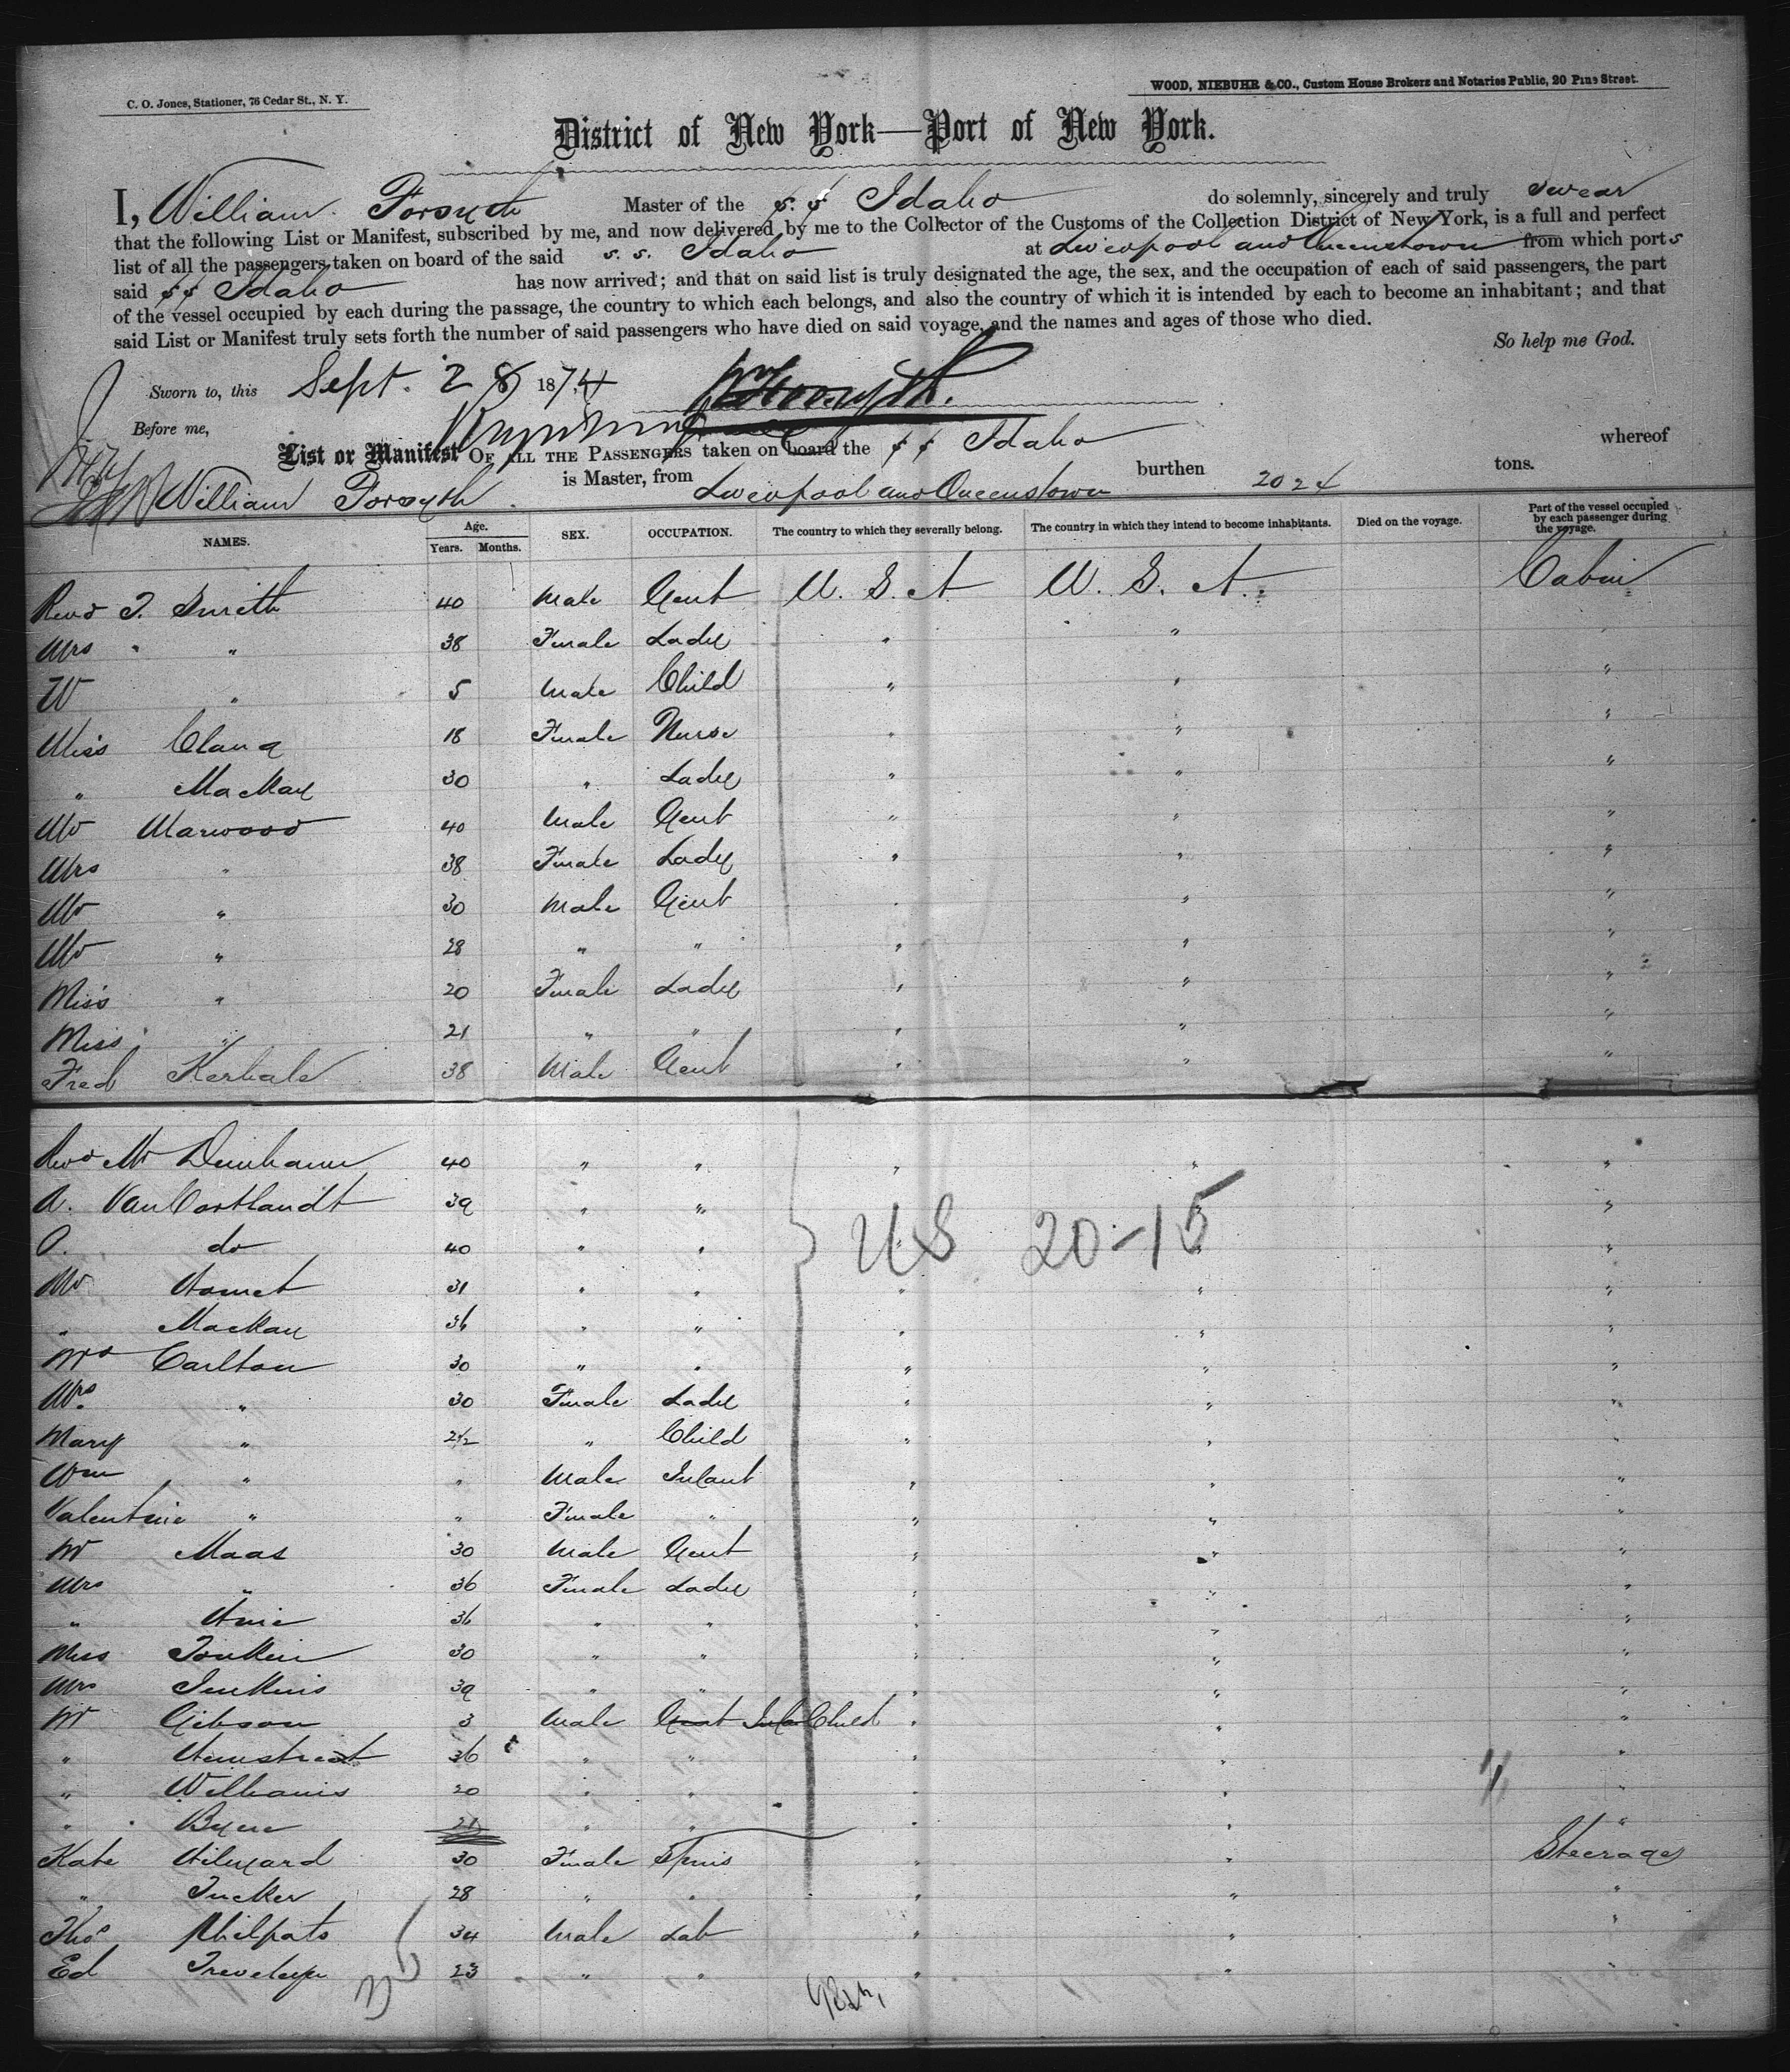 C. O. Jones, Stationer, 76 Cedar St., N. Y.
WOOD, NIEBUHR & CO., Custom House Brokers and Notaries Public, 20 Pine Street.
District of New York—Port of New York.
I, William Forsyth Master of the s. s Idaho do solemnly, sincerely and truly swear
that the following List or Manifest, subscribed by me, and now delivered by me to the Collector of the Customs of the Collection District of New York, is a full and perfect
list of all the passengers taken on board of the said s. s. Idaho at Liverpool and Queenstown from which ports
said s s Idaho has now arrived; and that on said list is truly designated the age, the sex, and the occupation of each of said passengers, the part
of the vessel occupied by each during the passage, the country to which each belongs, and also the country of which it is intended by each to become an inhabitant; and that
said List or Manifest truly sets forth the number of said passengers who have died on said voyage, and the names and ages of those who died.
So help me God.
Sworn to, this Sept. 28 1874 WForsyth.
Before me,
List or Manifest OF ALL THE PASSENGERS taken on board the s s Idaho whereof
William Forsyth is Master, from Liverpool and Queenstown burthen 2024 tons.
NAMES. Age. Years. Months. SEX. OCCUPATION. The country to which they severally belong. The country in which they intend to become inhabitants. Died on the voyage. Part of the vessel occupied by each passenger during the voyage.
Revd T. Smith 40 Male Gent U. S. A U. S. A. Cabin
Mrs " " 38 Female Lady " "
W " 5 Male Child " " "
Miss 18 Female Nurse " " "
" MacKay 30 " Lady " " "
Mr Marwood 40 Male Gent " " "
Mrs " 38 Female Lady " " "
Mr " 30 Male Gent " " "
Mr " 28 " " " " "
Miss " 20 Female Lady " " "
Miss " 21 " " " " "
Fred 38 Male Gent " " "
Revd Mr 40 " " " " "
A. VanCortlandt 39 " " " " "
do 40 " " " " "
US 20-15
Mr 31 " " " " "
" MacKay 36 " " " " "
Mr Carlton 30 " " " " "
Mrs " 30 Female Lady " " "
Mary " 2½ " Child " " "
Wm " " Male Infant " " "
Valentine " " Female " " " "
Mr Maas 30 Male Gent " " "
Mrs " 36 Female Lady " " "
" 36 " " " " "
Miss 30 " " " " "
Mrs Jenkins 39 " " " " "
Mr Gibson 3 Male Gent Child " " "
" 36 " " " " "
" Williams 20 " " " " "
" Byrne 21 " " " " "
Kate Hilyard 30 Female Spins " " Steerage
" Tucker 28 " " " " "
Thos Philpots 34 Male Lab " " "
Ed 23 " " " " "